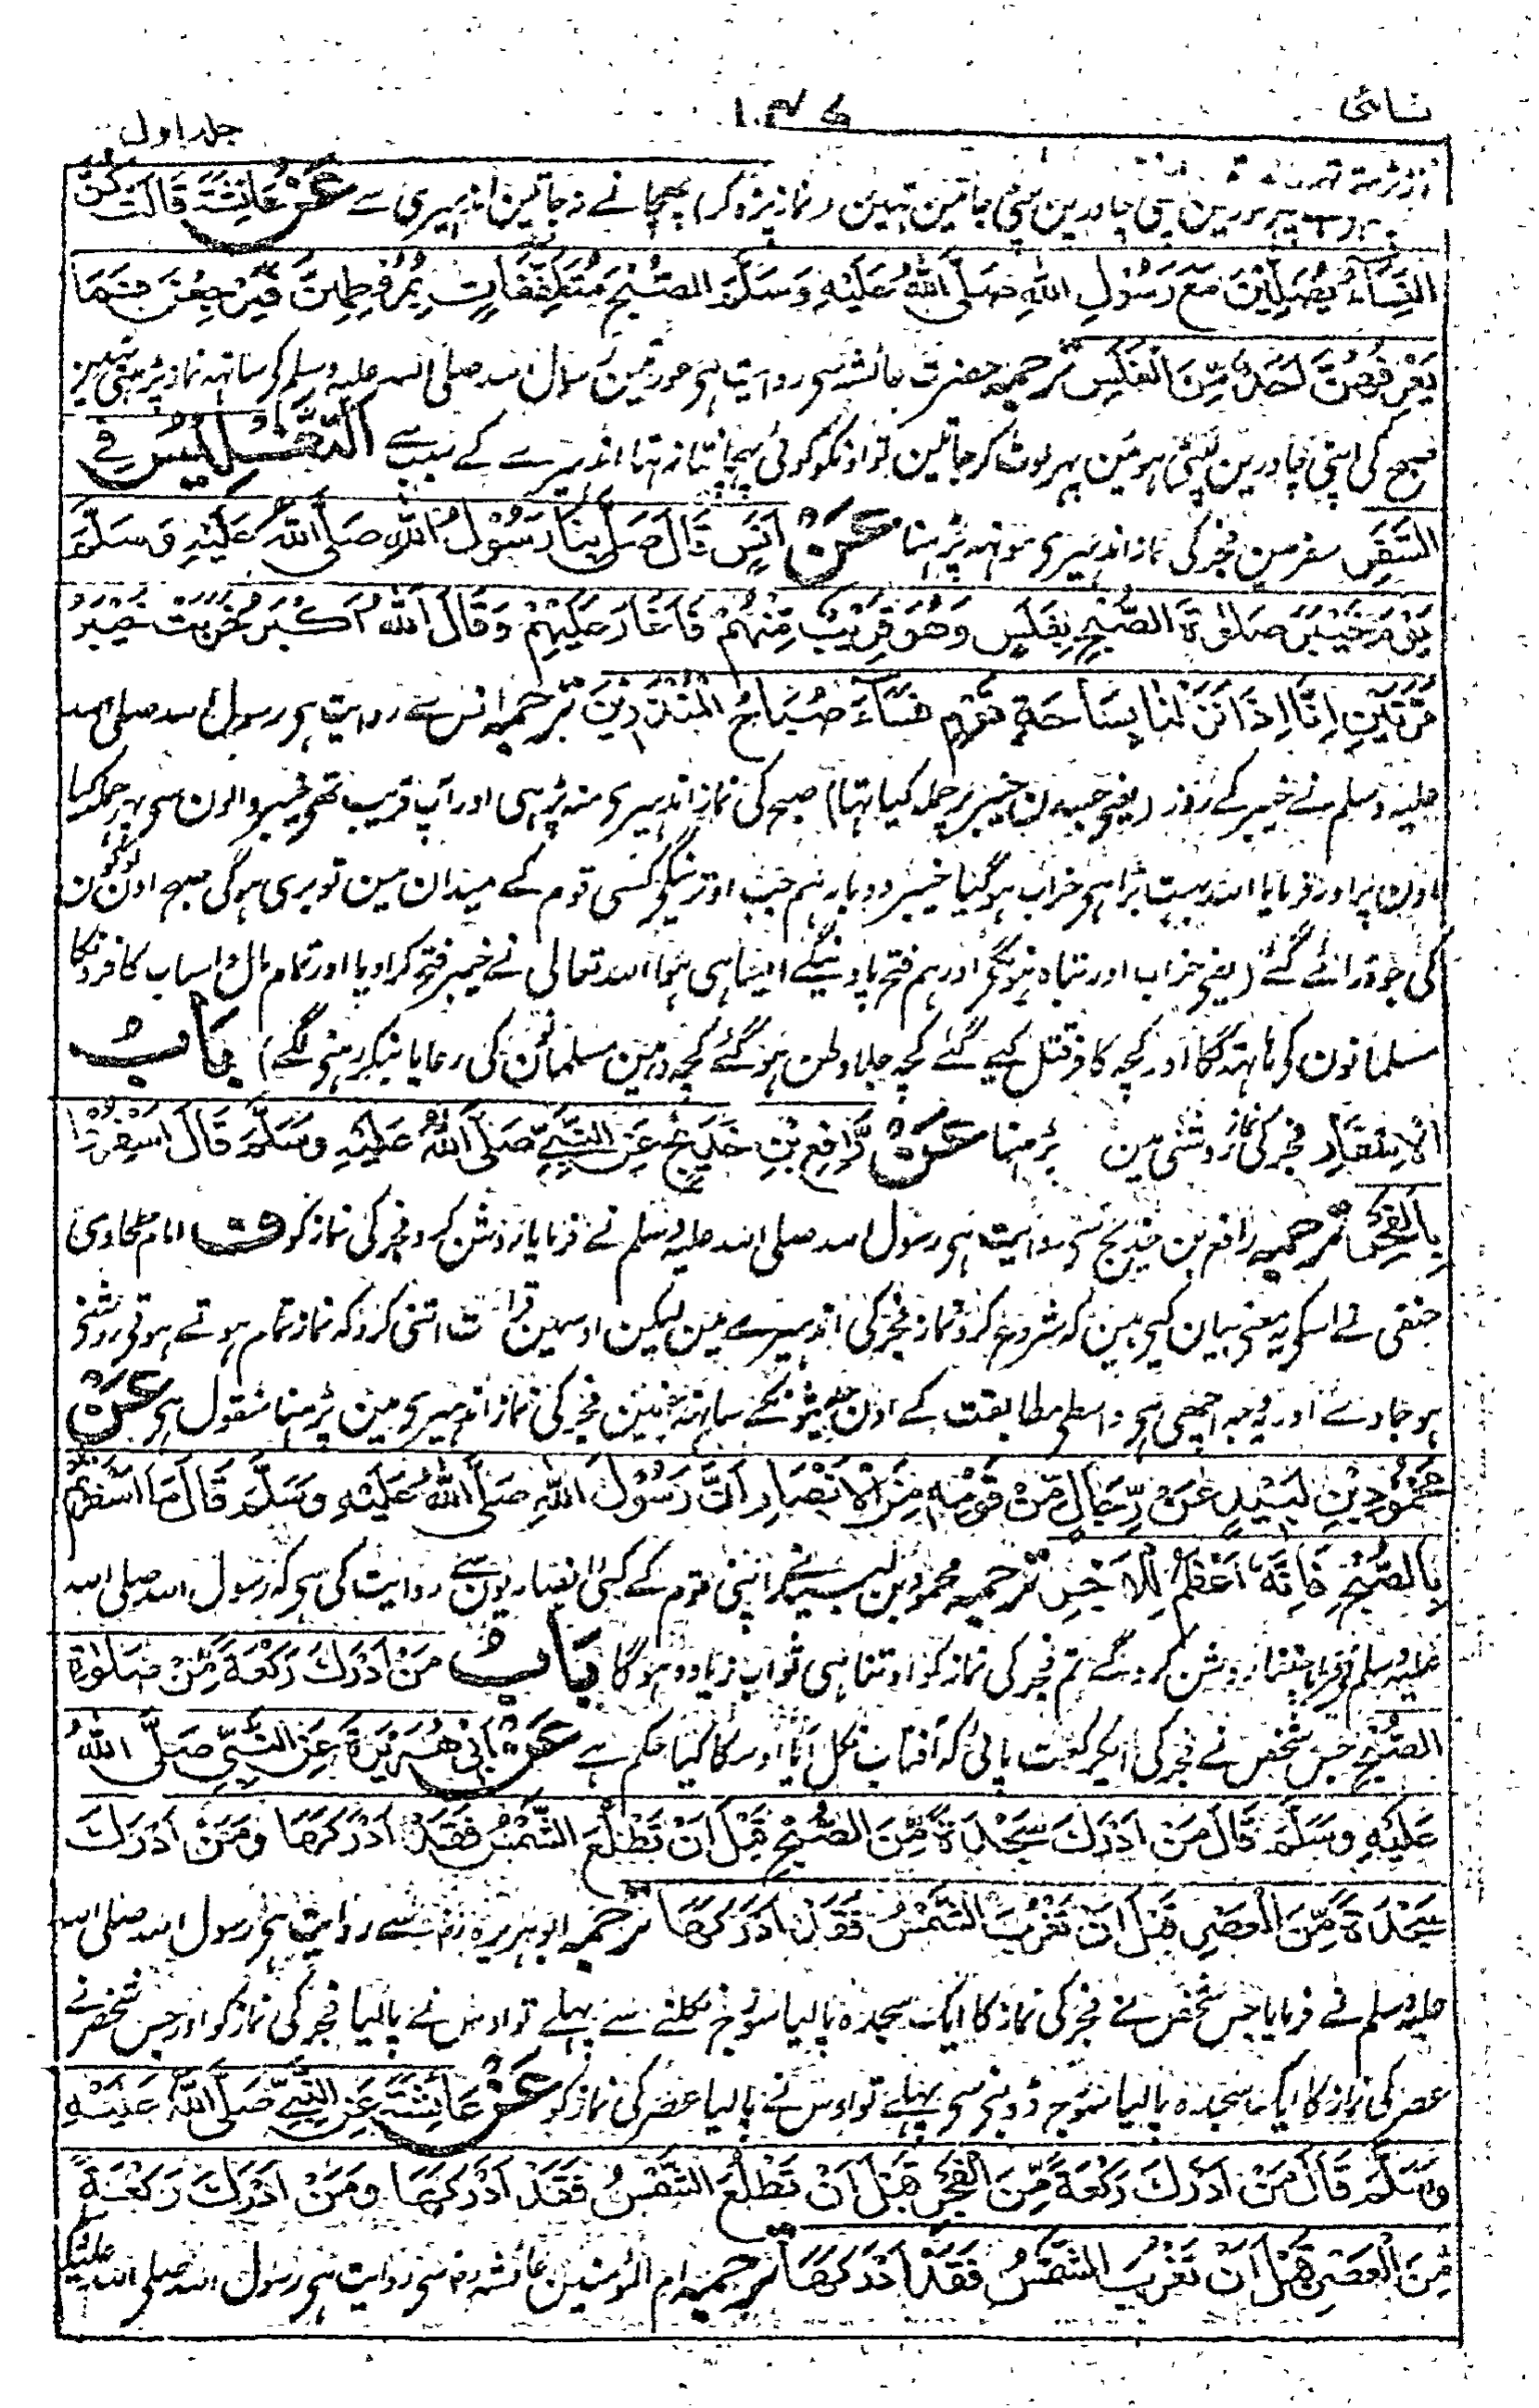 نسائی
جلد اول
عورتین اپنی چادرین لپٹی جاتین تہین (نماز پڑہ کر) پہچانے نہ جاتین اندہیری سے عَنْ عَائِشَةَ قَالَتْ كُنَّ
النِّسَاءُ يُصَلِّيْنَ مَعَ رَسُوْلِ اللّٰهِ صَلَّى اللّٰهُ عَلَيْهِ وَسَلَّمَ الصُّبْحَ مُتَلَفِّعَاتٍ بِمُرُوْطِهِنَّ فَيَرْجِعْنَ فَمَا
يَعْرِفُهُنَّ اَحَدٌ مِّنَ الْغَلَسِ ترجمہ حضرت عائشہ سی روایت ہی عورتین رسول اللہ صلی اللہ علیہ وسلم کی ساتہہ نماز پڑہتی تہین
صبح کی اپنی چادرین لپٹی ہوئین پہر لوٹ کر جاتین تو اونکو کوئی پہچانتا نہ تہا اندہیرے کے سبب سے اَلتَّغْلِيْسُ فِي
السَّفَرِ سفر مین فجر کی نماز اندہیری مونہہ پڑہنا عَنْ اَنَسٍ قَالَ صَلّٰى بِنَا رَسُوْلُ اللّٰهِ صَلَّى اللّٰهُ عَلَيْهِ وَسَلَّمَ
يَوْمَ خَيْبَرَ صَلٰوةَ الصُّبْحِ بِغَلَسٍ وَهُوَ قَرِيْبٌ مِّنْهُمْ فَاَغَارَ عَلَيْهِمْ وَقَالَ اَللّٰهُ اَكْبَرُ خَرِبَتْ خَيْبَرُ
مَرَّتَيْنِ اِنَّا اِذَا نَزَلْنَا بِسَاحَةِ قَوْمٍ فَسَاءَ صَبَاحُ الْمُنْذَرِيْنَ ترجمہ انس سے روایت ہی رسول اللہ صلی اللہ
علیہ وسلم نے خیبر کے روز (یعنی جب دن خیبر پر حملہ کیا تہا) صبح کی نماز اندہیری منہ پڑہی اور آپ قریب تہی خیبر والون سی پہر حملہ کیا
اون پر اور فرمایا اللہ بہت بڑا ہی خراب ہو گیا خیبر دوبار ہم جب اوترینگی کسی قوم کے میدان مین تو بری ہوگی صبح اون لوگون
کی جو ڈرائے گئے (یعنی خراب اور تباہ ہونگی اور ہم فتح پاوینگے ایسا ہی ہوا اللہ تعالی نے خیبر فتح کرا دیا اور تمام مال و اسباب کافرونکا
مسلمانون کو ہاتہہ لگا اور کچہ کافر قتل کیے گئے کچہ جلا وطن ہو گئے کچہ وہین مسلمانون کی رعایا بنکر رہنی لگے) بَابُ
الْاِسْفَارِ فجر کی نماز روشنی مین پڑہنا عَنْ رَّافِعِ بْنِ خَدِيْجٍ عَنِ النَّبِيِّ صَلَّى اللّٰهُ عَلَيْهِ وَسَلَّمَ قَالَ اَسْفِرُوْا
بِالْفَجْرِ ترجمہ رافع بن خدیج سی روایت ہی رسول اللہ صلی اللہ علیہ وسلم نے فرمایا روشن کرو فجر کی نماز کو ف امام طحاوی
حنفی نے اسکی یہ معنی بیان کیی ہین کہ شروع کرو نماز فجر کی اندہیرے مین لیکن اوسمین قرأت اتنی کرو کہ نماز تمام ہوتے ہوتی روشنی
ہو جاوے اور یہ وجہ اچہی ہی واسطی مطابقت کے اون حدیثونکے ساتہہ جنمین فجر کی نماز اندہیری مین پڑہنا منقول ہی عَنْ
مَحْمُوْدِ بْنِ لَبِيْدٍ عَنْ رِّجَالٍ مِّنْ قَوْمِهٖ مِنَ الْاَنْصَارِ اَنَّ رَسُوْلَ اللّٰهِ صَلَّى اللّٰهُ عَلَيْهِ وَسَلَّمَ قَالَ مَا اَسْفَرْتُمْ
بِالصُّبْحِ فَاِنَّهٗ اَعْظَمُ لِلْاَجْرِ ترجمہ محمود بن لبید نے اپنی قوم کے کئی انصاریون سے روایت کی ہی کہ رسول اللہ صلی اللہ
علیہ وسلم نے فرمایا جتنا روشن کروگے تم فجر کی نماز کو اوتنا ہی ثواب زیادہ ہوگا بَابُ مَنْ اَدْرَكَ رَكْعَةً مِّنْ صَلٰوةِ
الصُّبْحِ جس شخص نے فجر کی ایک رکعت پائی کہ آفتاب نکل آیا اوسکا کیا حکم ہے عَنْ اَبِي هُرَيْرَةَ عَنِ النَّبِيِّ صَلَّى اللّٰهُ
عَلَيْهِ وَسَلَّمَ قَالَ مَنْ اَدْرَكَ سَجْدَةً مِّنَ الصُّبْحِ قَبْلَ اَنْ تَطْلُعَ الشَّمْسُ فَقَدْ اَدْرَكَهَا وَمَنْ اَدْرَكَ
سَجْدَةً مِّنَ الْعَصْرِ قَبْلَ اَنْ تَغْرُبَ الشَّمْسُ فَقَدْ اَدْرَكَهَا ترجمہ ابو ہریرہ رض سے روایت ہی رسول اللہ صلی اللہ
علیہ وسلم نے فرمایا جس شخص نے فجر کی نماز کا ایک سجدہ پا لیا سورج نکلنے سے پہلے تو اوس نے پا لیا فجر کی نماز کو اور جس شخص نے
عصر کی نماز کا ایک سجدہ پا لیا سورج ڈوبنی سی پہلے تو اوس نے پا لیا عصر کی نماز کو عَنْ عَائِشَةَ عَنِ النَّبِيِّ صَلَّى اللّٰهُ عَلَيْهِ
وَسَلَّمَ قَالَ مَنْ اَدْرَكَ رَكْعَةً مِّنَ الْفَجْرِ قَبْلَ اَنْ تَطْلُعَ الشَّمْسُ فَقَدْ اَدْرَكَهَا وَمَنْ اَدْرَكَ رَكْعَةً
مِّنَ الْعَصْرِ قَبْلَ اَنْ تَغْرُبَ الشَّمْسُ فَقَدْ اَدْرَكَهَا ترجمہ ام المؤمنین عائشہ رض سی روایت ہی رسول اللہ صلی اللہ علیہ وسلم